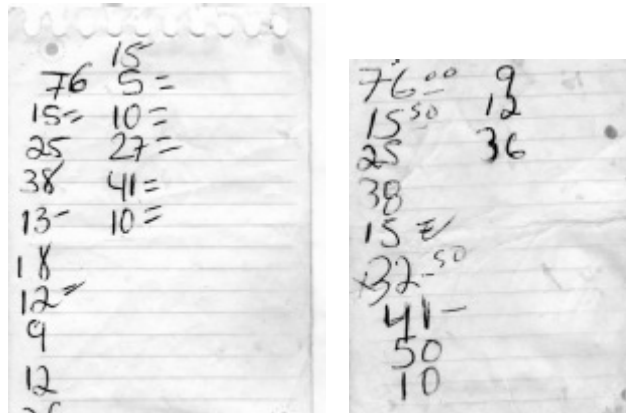 15
76 5=
15= 10=
25 27=
38 41=
13- 10=
18
12=
9
12
76 00 9
15 50 12
25 36
38
15
32-50
41-
50
10